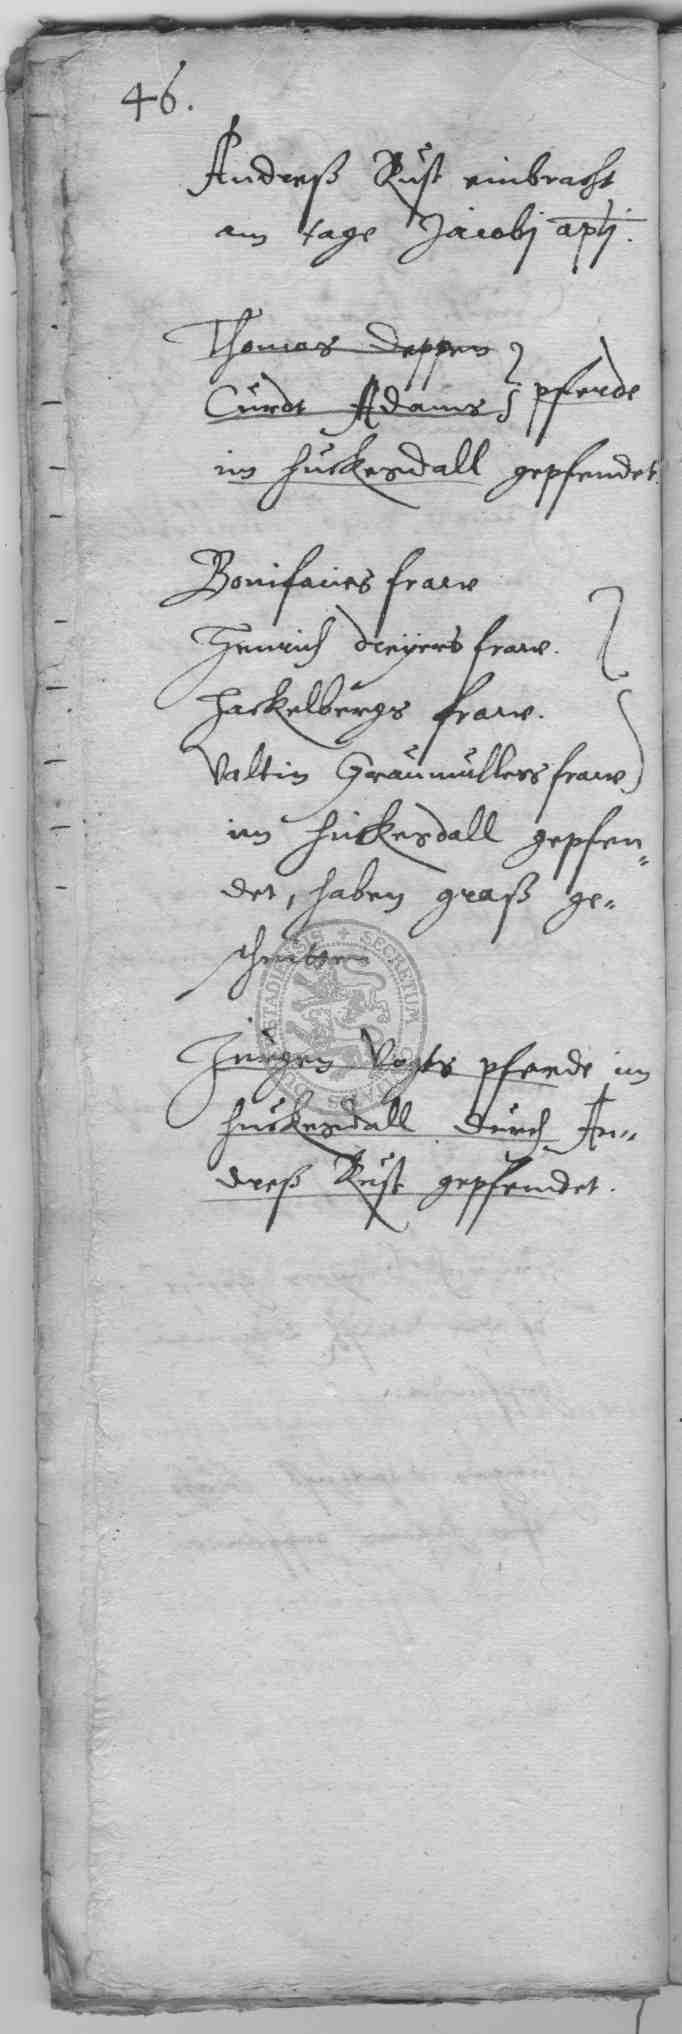 46.
Andreß Rust einbracht
am tage Jacobj aplj.
Thomas Deppen
Curdt Adams pferde
im Huckesdall gepfendet.
Bonifacies fraw
Henrich Dreyers fraw.
Hackelbergs fraw.
Valtin Graumullers fraw
im Huckesdall gepfen„
det, haben graß ge„
schnitten
Jurgen Vogts pferde im
Huckesdall durch An„
dreß Rust gepfendet.
SECRETUM